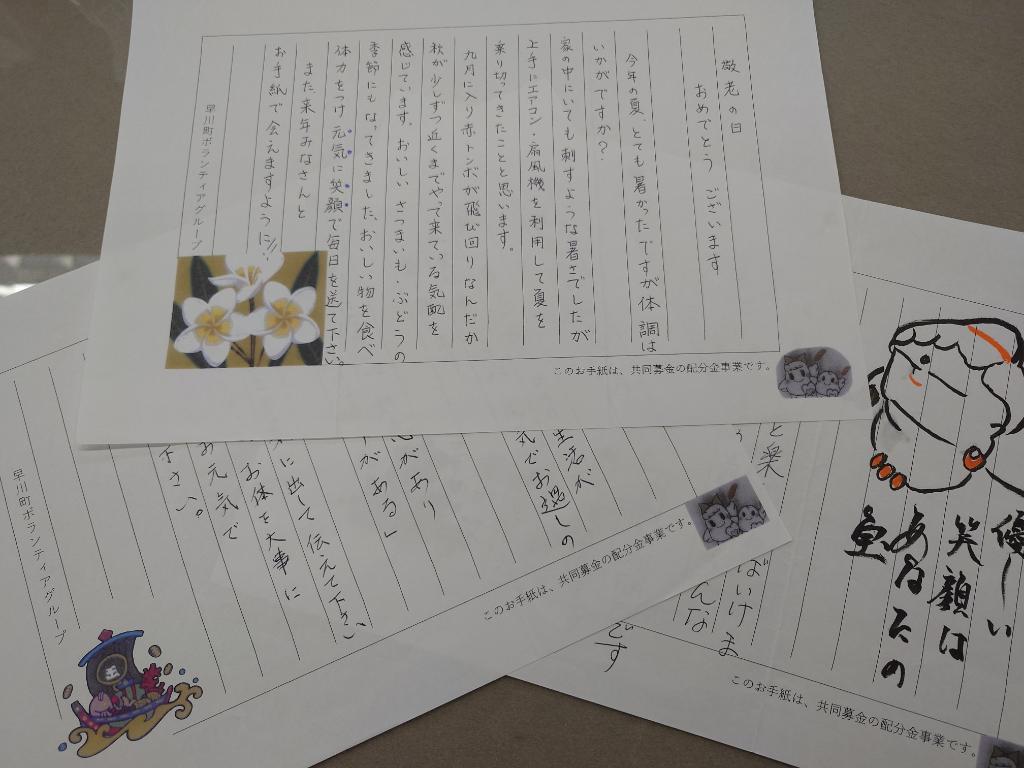 敬老の日
おめでとう ございます
今年の夏、とても暑かったですが体調は
いかがですか?
家の中にいても刺すような暑さでしたが
上手にエアコン・扇風機を利用して夏を
乗り切ってきたことと思います。
九月に入り赤トンボが飛び回りなんだか
秋が少しずつ近くまでやって来ている気配を
感じています。おいしい さつまいも・ぶどうの
季節にもなってきました、おいしい物を食べ
体力をつけ 元気に笑顔で毎日を送て下さい。
また来年みなさんと
お手紙で会えますように!!
早川町ボランティアグループ
このお手紙は、共同募金の配分金事業です。
生活が
気でお過しの
心があり
がある」
に出して伝えて下さい、
お体を大事に
お元気で
下さい。
早川町ボランティアグループ
このお手紙は、共同募金の配分金事業です。
優しい
笑顔は
あなたの
宝
と楽
ばいけま
んな
です
このお手紙は、共同募金の配分金事業です。